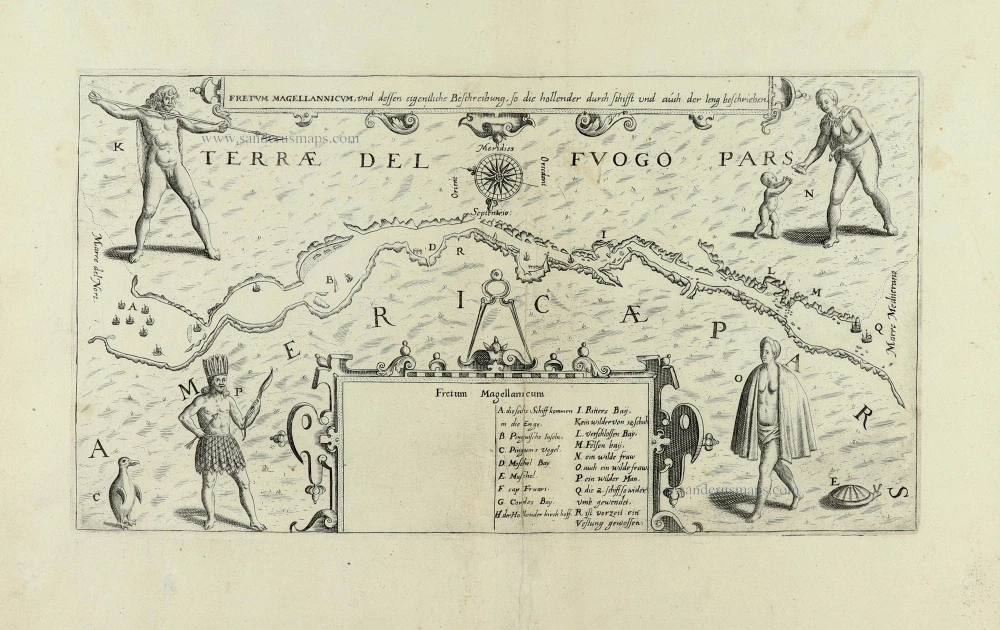 FRETVM MAGELLANNICVM, vnd dessen eigentliche Beschreibung, so die hollender durch schifft vnd auch der leng beschrieben.
www.sanderusmaps.com
K
TERRÆ DEL FVOGO PARS
N
Meridies
Orient
Occident
Septentrio
Marre del Nort
A
B
D
R
I
L
M
Q
Marre Mediterano
AMERICÆ PARS
P
O
C
E
Fretum Magellanicum
A die sechs Schiff kommen
in die Enge.
B. Pinguische Inseln.
C. Pinguins Vogel.
D. Muschel Bay
E. Muschel.
F. cap Fruart.
G. Cordes Bay.
H. der Hollender kirch hoff.
I. Ritters Baij,
K ein wilder von 12 schuh
L. verschlossen Baÿ.
M. Felsen baij.
N. ein wilde fraw
O. auch ein wilde fraw
P. ein wilder Man.
Q. die 2. schiff so wider
vmb gewendet.
R. ist vorzeit ein
Vestung gewessen.
sanderusmaps.co